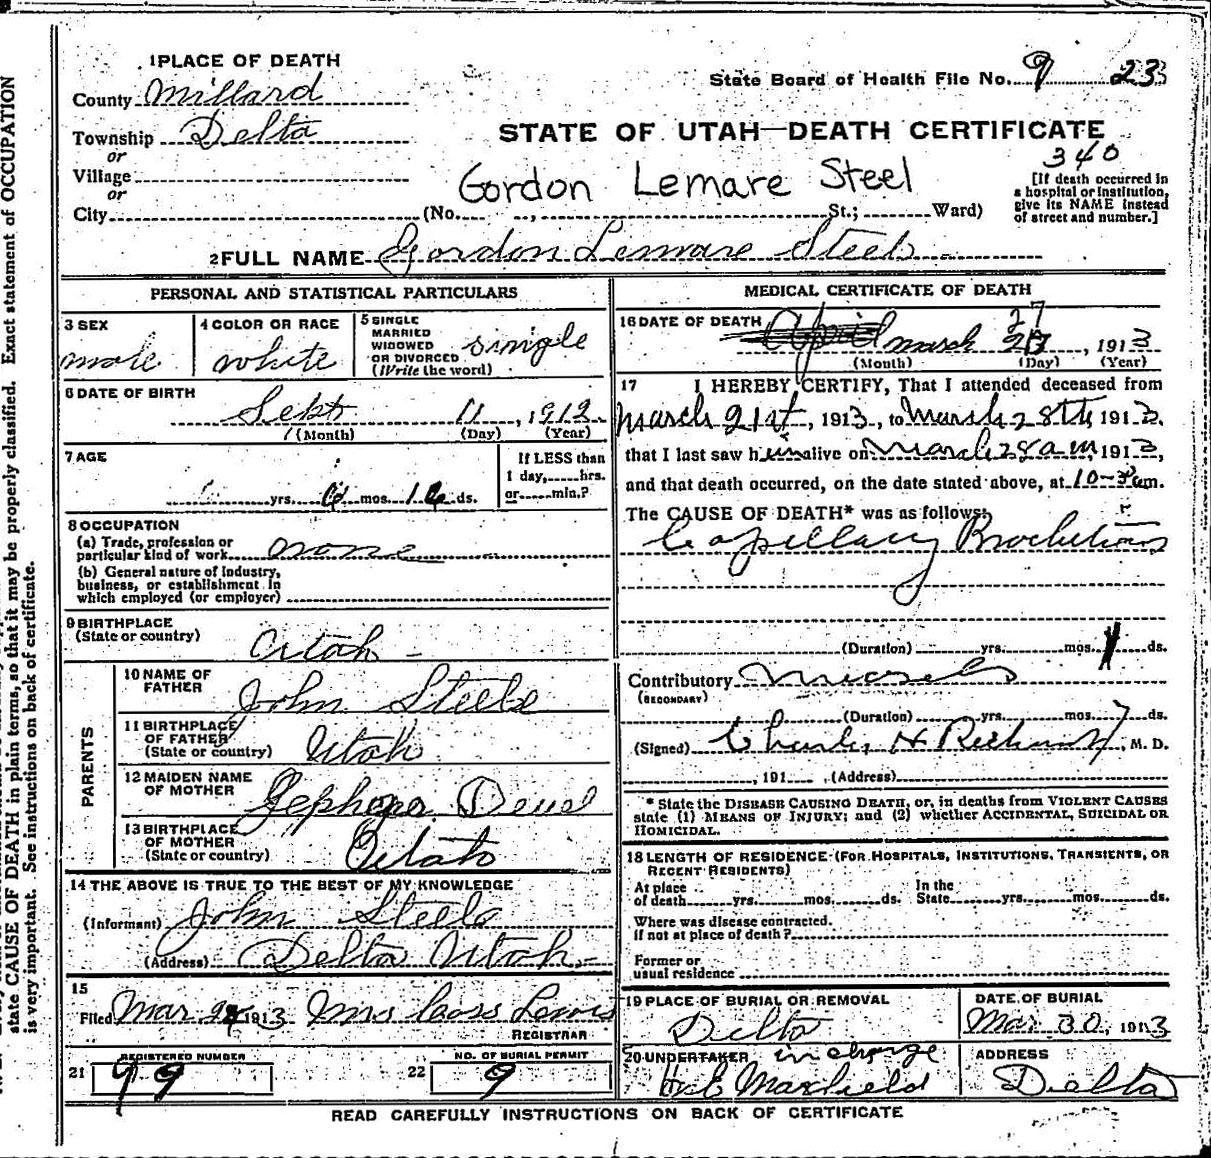 1 PLACE OF DEATH
State Board of Health File No. 9 23
County Millard
Township Delta
STATE OF UTAH—DEATH CERTIFICATE
340
or
Village
or
City (No. , St.; Ward)
Gordon Lemare Steel
[If death occurred in
a hospital or institution,
give its NAME instead
of street and number.]
2 FULL NAME Gordon Lemare Steele
PERSONAL AND STATISTICAL PARTICULARS
3 SEX
male
4 COLOR OR RACE
white
5 SINGLE
MARRIED
WIDOWED
OR DIVORCED
(Write the word)
single
6 DATE OF BIRTH
Sept 11, 1912
(Month) (Day) (Year)
7 AGE
yrs. 6 mos. 16 ds.
If LESS than
1 day, hrs.
or min.?
8 OCCUPATION
(a) Trade, profession or
particular kind of work none
(b) General nature of Industry,
business, or establishment in
which employed (or employer)
9 BIRTHPLACE
(State or country)
Utah
PARENTS
10 NAME OF
FATHER
John Steele
11 BIRTHPLACE
OF FATHER
(State or country)
Utah
12 MAIDEN NAME
OF MOTHER
Deuel
13 BIRTHPLACE
OF MOTHER
(State or country)
Utah
14 THE ABOVE IS TRUE TO THE BEST OF MY KNOWLEDGE
(Informant) John Steele
(Address) Delta Utah
15
Filed Mar 1913 Mrs Cass Lewis
REGISTRAR
21 REGISTERED NUMBER
99
22 NO. OF BURIAL PERMIT
9
MEDICAL CERTIFICATE OF DEATH
16 DATE OF DEATH April March 27, 1913
(Month) (Day) (Year)
17 I HEREBY CERTIFY, That I attended deceased from
March 21st, 1913, to March 28th, 1913,
that I last saw him alive on March 28 am, 1913,
and that death occurred, on the date stated above, at 10-30 am.
The CAUSE OF DEATH* was as follows:
Capillary Brochitious
(Duration) yrs. mos. ds.
Contributory Measels
(SECONDARY)
(Duration) yrs. mos. 7 ds.
(Signed) Charles H Richards, M. D.
, 191 , (Address)
* State the DISEASE CAUSING DEATH, or, in deaths from VIOLENT CAUSES
state (1) MEANS OF INJURY; and (2) whether ACCIDENTAL, SUICIDAL OR
HOMICIDAL.
18 LENGTH OF RESIDENCE (FOR HOSPITALS, INSTITUTIONS, TRANSIENTS, OR
RECENT RESIDENTS)
At place
of death yrs. mos. ds.
In the
State yrs. mos. ds.
Where was disease contracted.
If not at place of death?
Former or
usual residence
19 PLACE OF BURIAL OR REMOVAL
Delta
DATE OF BURIAL
Mar 30, 1913
20 UNDERTAKER in charge
Maxfield
ADDRESS
Delta
READ CAREFULLY INSTRUCTIONS ON BACK OF CERTIFICATE
state CAUSE OF DEATH in plain terms, so that it may be properly classified. Exact statement of OCCUPATION
is very important. See instructions on back of certificate.